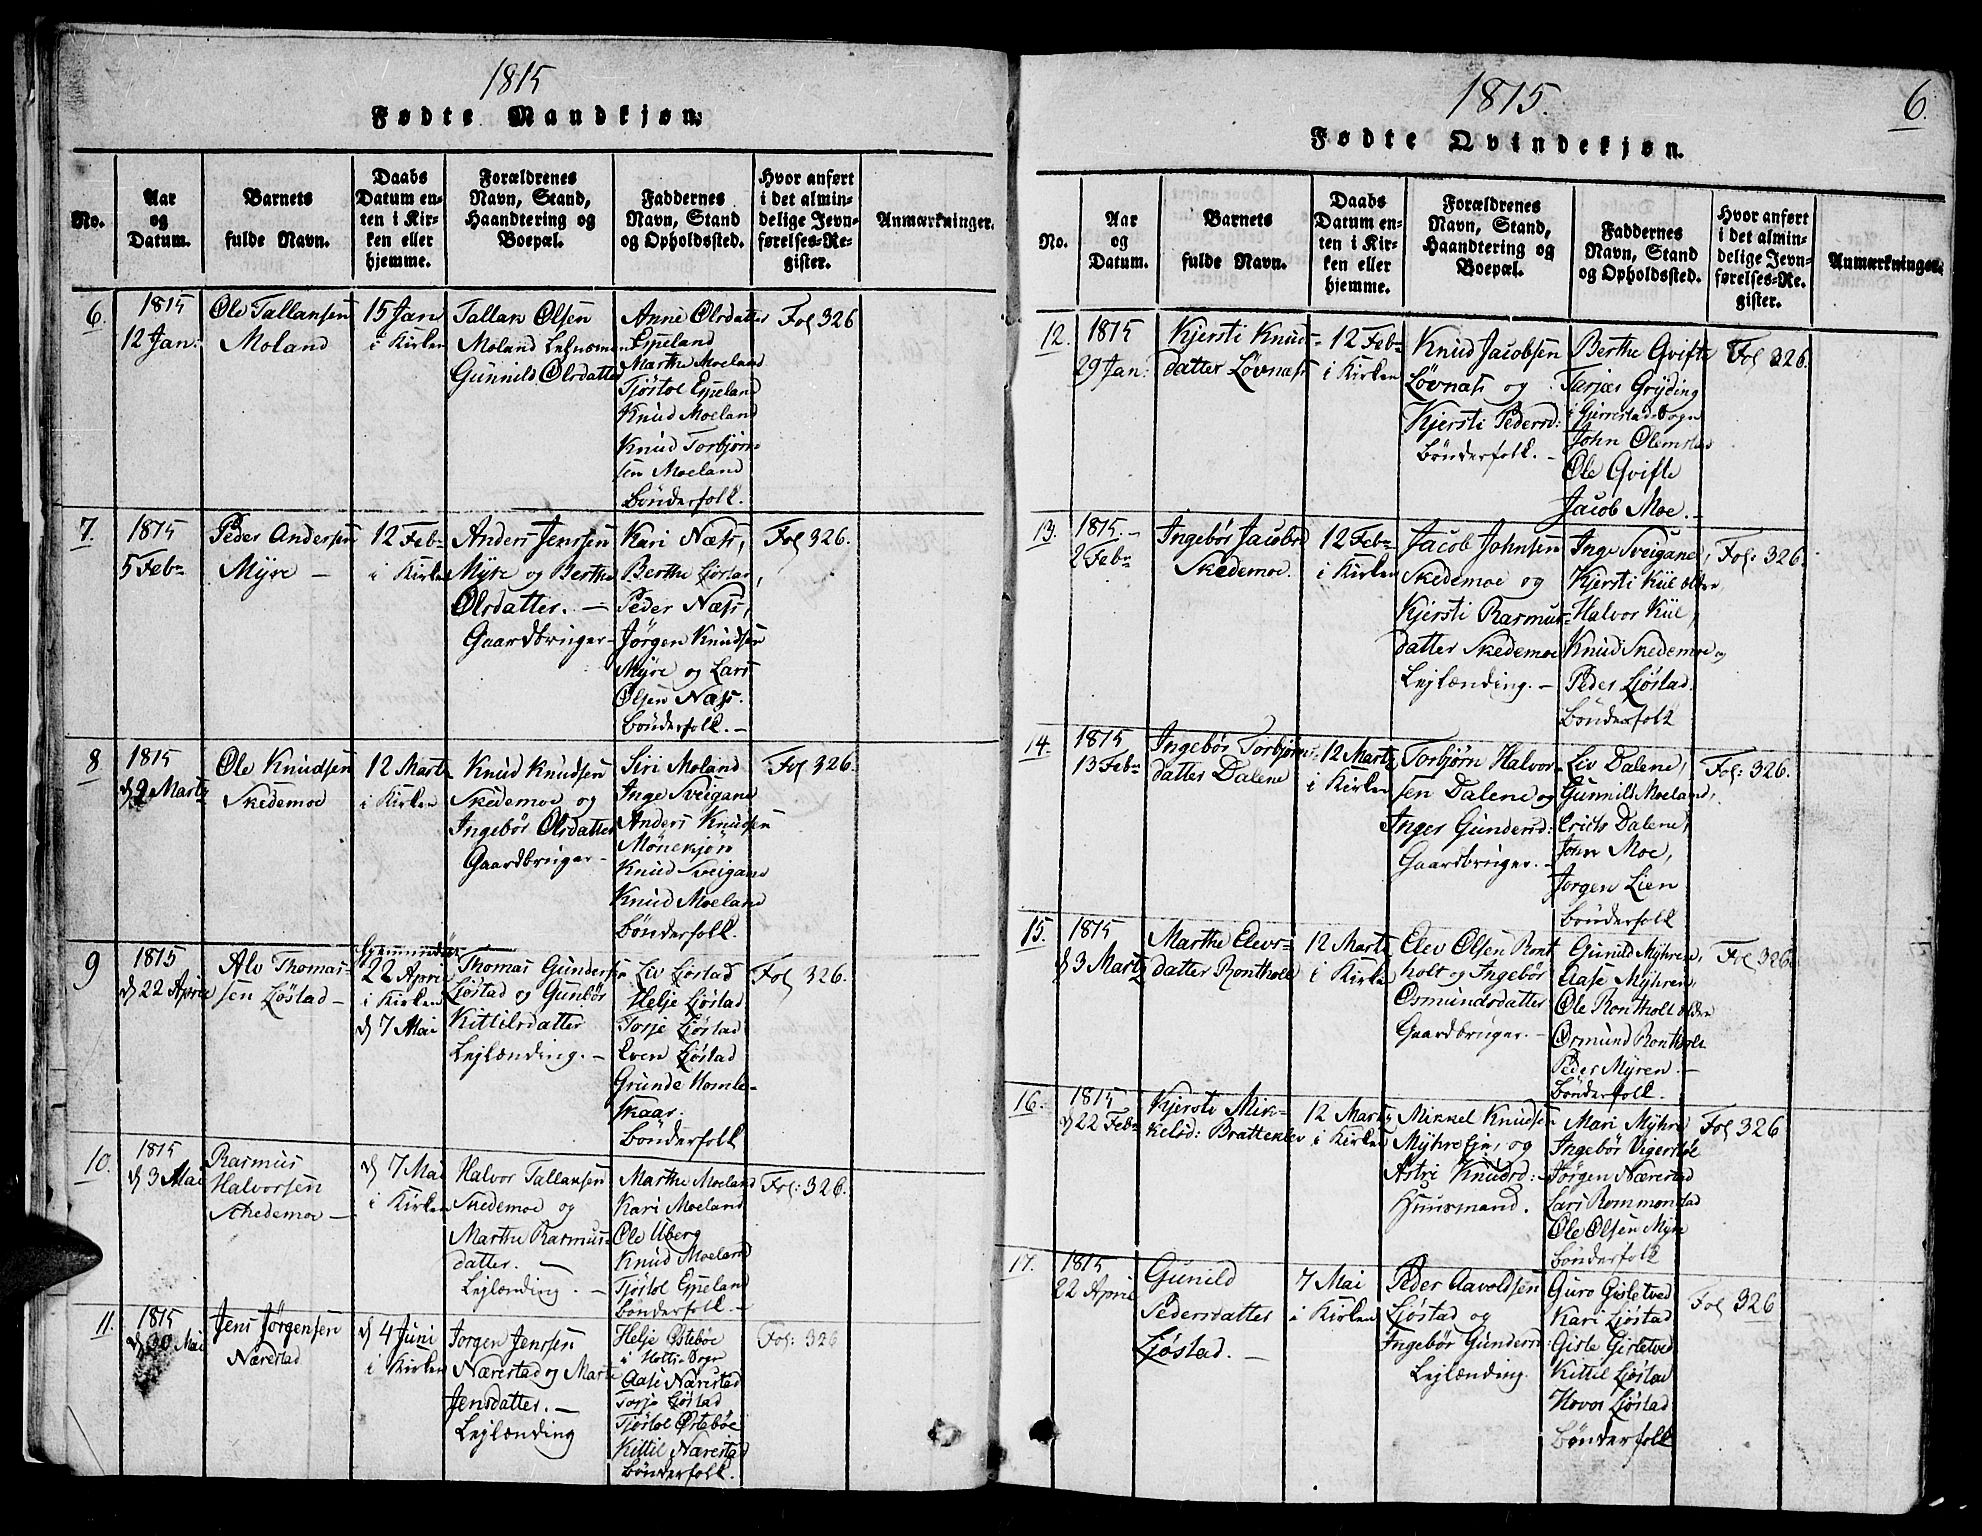 1815
Fødte Mandkjøn.
No.
Aar
og
Datum.
Barnets
fulde Navn.
Daabs
Datum en-
ten i Kir-
ken eller
hjemme.
Forældrenes
Navn, Stand,
Haandtering og
Boepæl.
Faddernes
Navn, Stand
og Opholdssted.
Hvor anført
i det almin-
delige Jevn-
førelses-Re-
gister.
Anmærkninger.
6.
1815
12 Jan:
Ole Tallansen
Moland
15 Jan
i Kirken
Tallan Olsen
Moland Lehnsmen
Gunnild Olsdatter
Anne Olsdatter
Eppeland
Marthe Moeland
Tjøstol Eppeland
Knud Moeland
Knud Torbjørn-
sen Moeland
Bønderfolk.
Fol 326
7.
1815
5 Feb
Peder Andersen
Myre —
12 Feb
i Kirken
Anders Jenssen
Myre og Berthe
Olsdatter. —
Gaardbruger-
Kari Næss,
Berthe Ljøstad,
Peder Næss,
Jørgen Knudsen
Myre og Lars
Olsen Næss.
Bønderfolk. —
Fol 326.
8
1815
d 9 Marts
Ole Knudsen
Skedemoe
12 Mart
i Kirken
Knud Knudsen
Skedemoe og
Ingebør Olsdatter
Gaardbruger-
Siri Moland
Inge Sveigane
Anders Knudsen
Mönekjøn
Knud Sveigane
Knud Moeland
Bønderfolk.
Fol 326.
9
1815
d 22 April
Alv Thomas-
sen Ljøstad —
22 April
i Kirken
d 7 Mai
Thomas Gunders
Ljøstad og Gunbör
Kittilsdatter
Lejlænding. —
Liv Ljøstad
Helje Ljøstad
Torje Ljøstad
Even Ljøstad
Grunde Homle-
skaar.
Bønderfolk
Fol 326.
10.
1815
d 3 Mai
Rasmus
Halvorsen
Schedemoe —
d 7 Mai
i Kirken
Halvor Tallansen
Skedemoe og
Marthe Rasmus-
datter. —
Lejlænding. —
Marthe Moeland
Kari Moeland
Ole Uberg
Knud Moeland
Tjøstol Eppeland
Bønderfolk —
Fol: 326.
11.
1815
d 30 Mai
Jens Jørgensen
Nærestad
d 4 Juni
i Kirken
Jørgen Jenssen
Nærestad og Marte
Jensdatter. —
Lejlænding
Helje Østebøe
i Holts Sogn
Aase Nærestad
Torje Ljøstad
Tjøstol Østebøe
Kittil Nærestad
Bønderfolk.
Fol: 326
1815.
6.
Fødte Qvindekjøn.
No.
Aar
og
Datum.
Barnets
fulde Navn.
Daabs
Datum en-
ten i Kir-
ken eller
hjemme.
Forældrenes
Navn, Stand,
Haandtering og
Boepæl.
Faddernes
Navn, Stand
og Opholdssted.
Hvor anført
i det almin-
delige Jevn-
førelses-Re-
gister.
Anmærkninger.
12.
1815
29 Jan:
Kjersti Knud-
datter Løvnass
12 Feb
i Kirken
Knud Jacobsen
Løvnass og
Kjersti Pedersd:
Bønderfolk. —
Berthe Gvifte
Tarjæs Gryding
i Gjerrestad Sogn
John Olimstad
Ole Gvifte
Jacob Moe. —
Fol 326.
13.
1815. —
2 Feb
Ingebør Jacobsd
Skedemoe.
12 Feb
i Kirken
Jacob Johnsen
Skedemoe og
Kjersti Rasmus-
datter Skedemoe
Lejlænding. —
Inge Sveigane,
Kjersti Kül ældre,
Halvor Kül,
Knud Skedemoe og
Peder Ljøstad.
Bønderfolk
Fol: 326.
14.
1815
13 Feb
Ingebør Torbjørns
datter Dalene
12 Marts
i Kirken
Torbjørn Halvor-
sen Dalene og
Inger Gundersd:
Gaardbruger. —
Liv Dalene,
Gunnild Moeland,
Erich Dalene,
John Moe,
Jørgen Lien
Bønderfolk
Fol: 326.
15.
1815
d 3 Marts
Marthe Elevs-
datter Rontholt
12 Marts
i Kirken
Elev Olsen Ront
holt og Ingebør
Osmundsdatter
Gaardbruger. —
Gunild Myhren,
Aase Myhren,
Ole Rontholt ældre
Osmund Rontholt
Peder Myren. —
Bønderfolk.
Fol 326.
16.
1815
d 22 Feb
Kjersti Mik-
kelsd: Bratteklev
12 Marts
i Kirken
Mikkel Knudsen
Myhre Eje, og
Astri Knudsd: —
Huusmand.
Mari Myhre
Ingebør Vigerstøl
Jørgen Nærestad
Lars Rommonstad
Ole Olsen Myre
Bønderfolk
Fol 326
17.
1815
22 April
Gunild
Pedersdatter
Ljøstad. —
7 Mai
i Kirken
Peder Aavoldsen
Ljøstad og
Ingebør Gundersd:
Lejlænding
Guro Gisletved
Kari Ljøstad
Gisle Gisletved
Kittil Ljøstad
Hovor Ljøstad
Bønderfolk
Fol 326